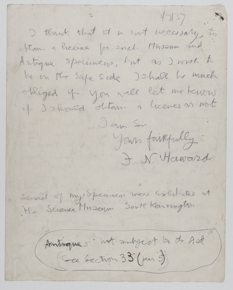 I think that it is not necessary to
obtain a license for such Museum and
Antique specimens, but as I want to
be on the safe side I shall be much
obliged if you will let me know
if I should obtain a license or not
I am Sir
Yours faithfully
F N Haward
Several of my specimens were exhibited at
the Science Museum South Kensington
Antiques: not subject to the Act
see Section 33